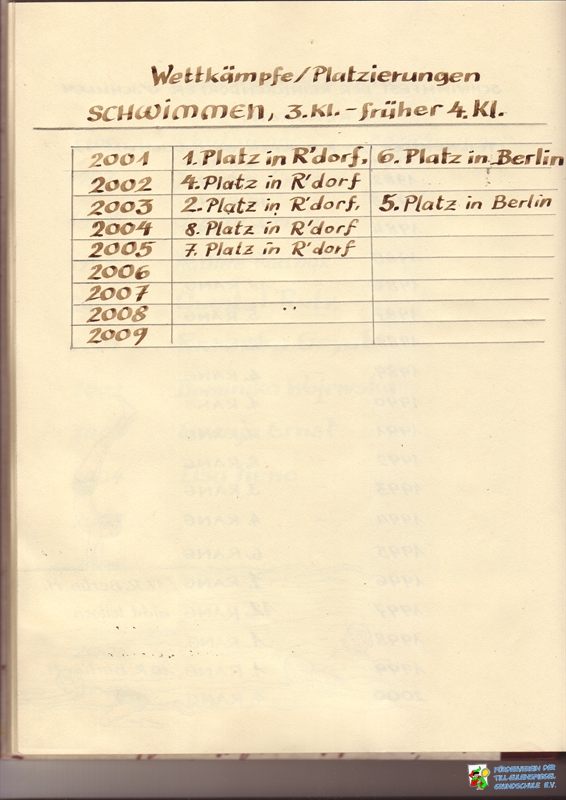 Wettkämpfe/Platzierungen
SCHWIMMEN, 3.Kl. - früher 4.Kl.
2001 1.Platz in R'dorf, 6.Platz in Berlin
2002 4.Platz in R'dorf
2003 2.Platz in R'dorf, 5.Platz in Berlin
2004 8.Platz in R'dorf
2005 7.Platz in R'dorf
2006
2007
2008
2009
FÖRDERVEREIN DER
TILL-EULENSPIEGEL
GRUNDSCHULE E.V.